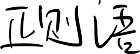 正则语